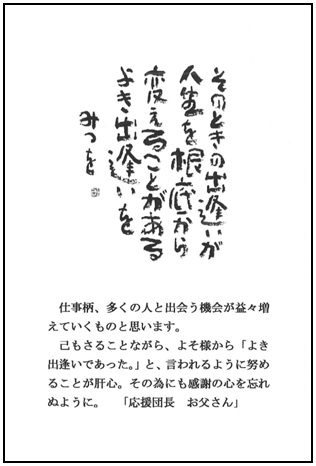 そのときの出逢いが
人生を根底から
変えることがある
よき出逢いを
みつを
仕事柄、多くの人と出会う機会が益々増
えていくものと思います。
己もさることながら、よそ様から「よき
出逢いであった。」と、言われるように努め
ることが肝心。その為にも感謝の心を忘れ
ぬように。 「応援団長 お父さん」